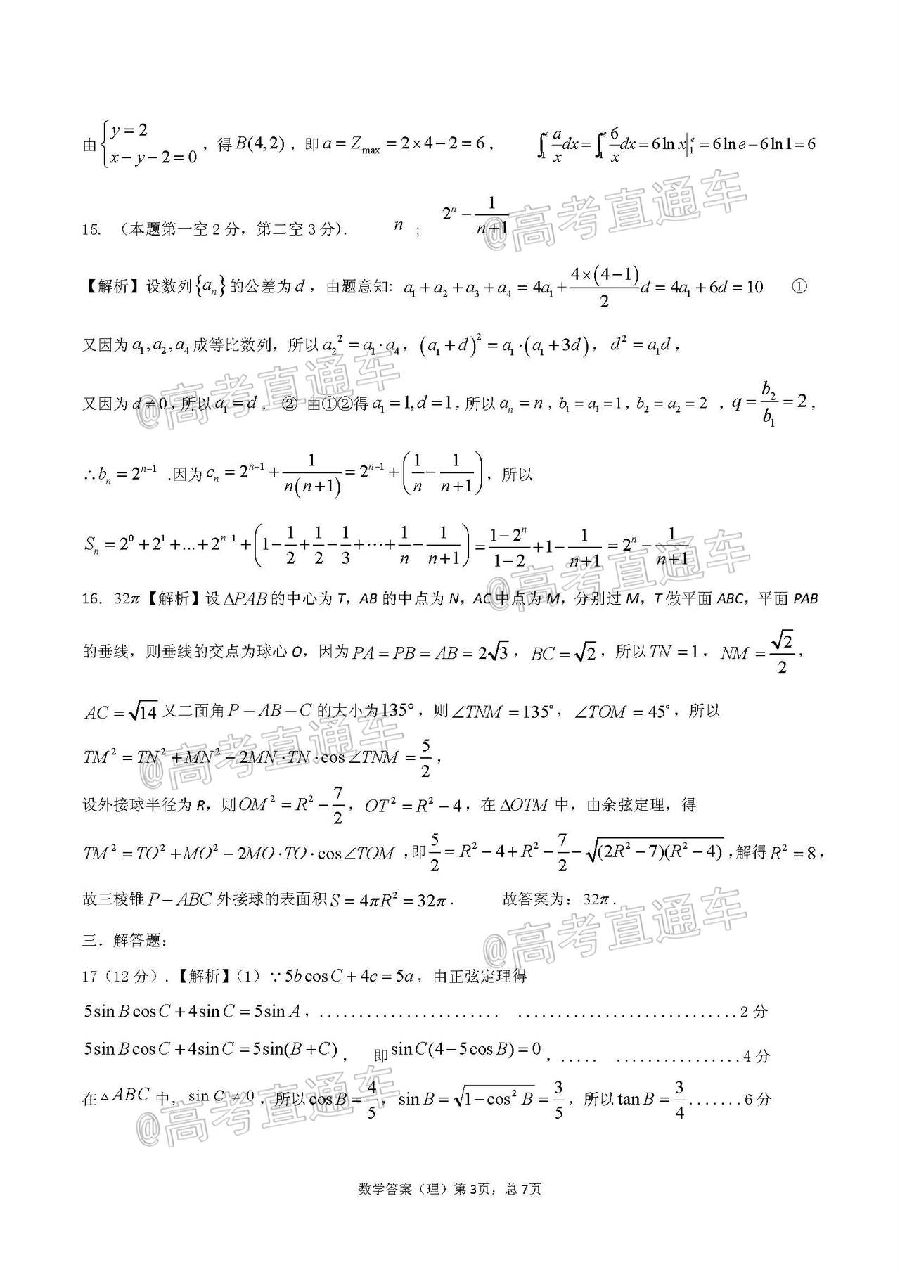 由{y=2, x-y-2=0，得B(4,2)，即a=Z_max=2×4-2=6，  ∫₁ᵉ a/x dx=∫₁ᵉ 6/x dx=6ln x|₁ᵉ=6ln e-6ln1=6
15. （本题第一空2分，第二空3分）. n ； 2ⁿ-1/(n+1)
【解析】设数列{aₙ}的公差为d，由题意知: a₁+a₂+a₃+a₄=4a₁+(4×(4-1))/2 d=4a₁+6d=10 ①
又因为a₁,a₂,a₄成等比数列，所以a₂²=a₁·a₄，(a₁+d)²=a₁·(a₁+3d)，d²=a₁d，
又因为d≠0,所以a₁=d． ② 由①②得a₁=1,d=1，所以aₙ=n，b₁=a₁=1，b₂=a₂=2 ，q=b₂/b₁=2，
∴bₙ=2ⁿ⁻¹ .因为cₙ=2ⁿ⁻¹+1/(n(n+1))=2ⁿ⁻¹+(1/n-1/(n+1))，所以
Sₙ=2⁰+2¹+...+2ⁿ⁻¹+(1-1/2+1/2-1/3+⋯+1/n-1/(n+1))=(1-2ⁿ)/(1-2)+1-1/(n+1)=2ⁿ-1/(n+1)
16. 32π【解析】设△PAB的中心为T，AB的中点为N，AC中点为M，分别过M，T做平面ABC，平面PAB
的垂线，则垂线的交点为球心O，因为PA=PB=AB=2√3，BC=√2，所以TN=1，NM=√2/2，
AC=√14又二面角P-AB-C的大小为135°，则∠TNM=135°，∠TOM=45°，所以
TM²=TN²+MN²-2MN·TN·cos∠TNM=5/2，
设外接球半径为R，则OM²=R²-7/2，OT²=R²-4，在△OTM中，由余弦定理，得
TM²=TO²+MO²-2MO·TO·cos∠TOM,即5/2=R²-4+R²-7/2-√((2R²-7)(R²-4)),解得R²=8，
故三棱锥P-ABC外接球的表面积S=4πR²=32π． 故答案为：32π．
三．解答题：
17（12分）.【解析】（1）∵5bcosC+4c=5a，由正弦定理得
5sinBcosC+4sinC=5sinA，...................... ............................2分
5sinBcosC+4sinC=5sin(B+C)， 即sinC(4-5cosB)=0，..... ................4分
在△ABC中，sinC≠0，所以cosB=4/5，sinB=√(1-cos²B)=3/5，所以tanB=3/4.......6分
数学答案（理）第3页，总7页
@高考直通车
@高考直通车
@高考直通车
@高考直通车
@高考直通车
@高考直通车